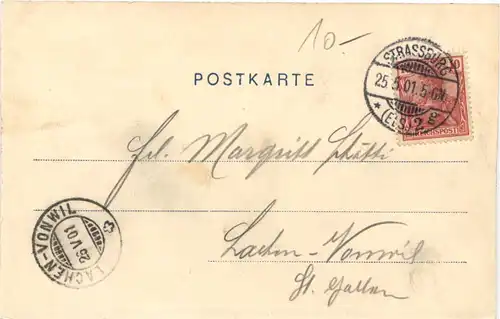 10.-
POSTKARTE
STRASSBURG
25.5.01.5-6N.
* (ELS.) 2 g
REICHSPOST
Frl. Margritt
Lachen-Vonwil
St. Gallen
LACHEN-VONWIL
26.V.01